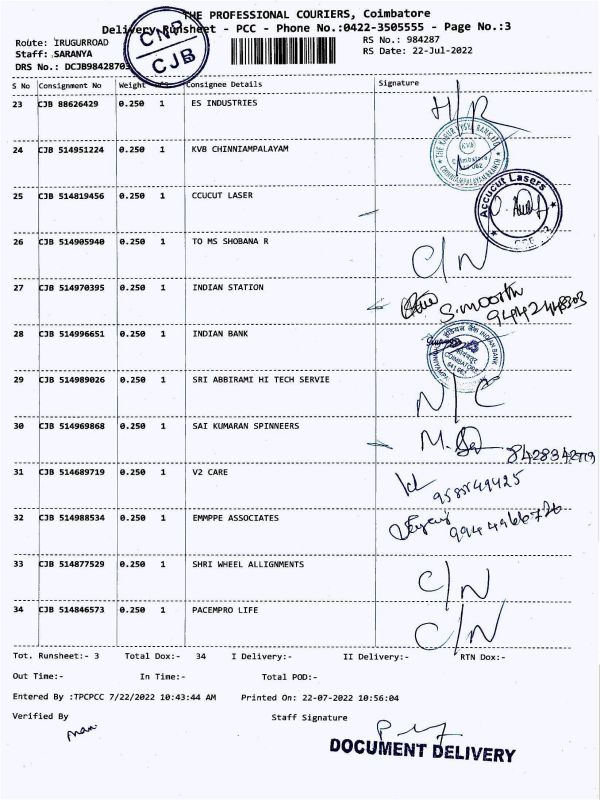 THE PROFESSIONAL COURIERS, Coimbatore
Delivery Runsheet - PCC - Phone No.:0422-3505555 - Page No.:3
CNP
CJB
Route: IRUGURROAD
RS No.: 984287
Staff: SARANYA
RS Date: 22-Jul-2022
DRS No.: DCJB98428703
S No Consignment No Weight Consignee Details Signature
23 CJB 88626429 0.250 1 ES INDUSTRIES H/R
24 CJB 514951224 0.250 1 KVB CHINNIAMPALAYAM
KVB
Coimbatore
25 CJB 514819456 0.250 1 CCUCUT LASER
Accucut Lasers
26 CJB 514905940 0.250 1 TO MS SHOBANA R C/N
27 CJB 514970395 0.250 1 INDIAN STATION S.moorthi
28 CJB 514996651 0.250 1 INDIAN BANK
INDIAN BANK
COIMBATORE
29 CJB 514989026 0.250 1 SRI ABBIRAMI HI TECH SERVIE N/C
30 CJB 514969868 0.250 1 SAI KUMARAN SPINNERS
31 CJB 514689719 0.250 1 V2 CARE
32 CJB 514988534 0.250 1 EMMPPE ASSOCIATES
33 CJB 514877529 0.250 1 SHRI WHEEL ALLIGNMENTS C/N
34 CJB 514846573 0.250 1 PACEMPRO LIFE C/N
Tot. Runsheet:- 3 Total Dox:- 34 I Delivery:- II Delivery:- RTN Dox:-
Out Time:- In Time:- Total POD:-
Entered By :TPCPCC 7/22/2022 10:43:44 AM Printed On: 22-07-2022 10:56:04
Verified By Staff Signature
DOCUMENT DELIVERY